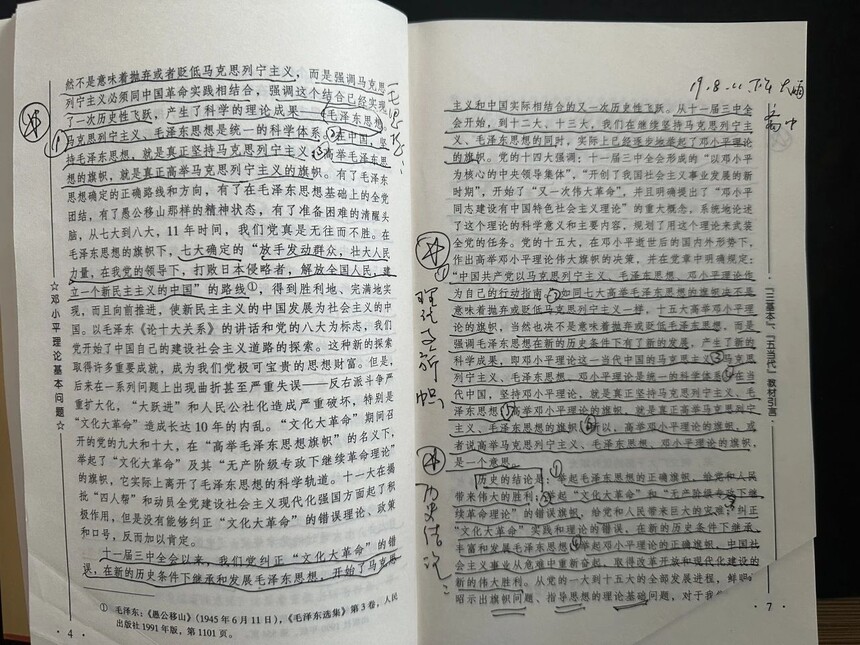 然不是意味着抛弃或者贬低马克思列宁主义，而是强调马克思
列宁主义必须同中国革命实践相结合，强调这个结合已经实现
了一次历史性飞跃，产生了科学的理论成果——毛泽东思想。
马克思列宁主义、毛泽东思想是统一的科学体系。在中国，坚
持毛泽东思想，就是真正坚持马克思列宁主义；高举毛泽东思
想的旗帜，就是真正高举马克思列宁主义的旗帜。有了毛泽东
思想确定的正确路线和方向，有了在毛泽东思想基础上的全党
团结，有了愚公移山那样的精神状态，有了准备困难的清醒头
脑，从七大到八大，11年时间，我们党真是无往而不胜。在
毛泽东思想的旗帜下，七大确定的“放手发动群众，壮大人民
力量，在我党的领导下，打败日本侵略者，解放全国人民，建
立一个新民主主义的中国”的路线①，得到胜利地、完满地实
现，而且向前推进，使新民主主义的中国发展为社会主义的中
国。以毛泽东《论十大关系》的讲话和党的八大为标志，我们
党开始了中国自己的建设社会主义道路的探索。这种新的探索
取得许多重要成就，成为我们党极可宝贵的思想财富。但是，
后来在一系列问题上出现曲折甚至严重失误——反右派斗争严
重扩大化，“大跃进”和人民公社化造成严重破坏，特别是
“文化大革命”造成长达10年的内乱。“文化大革命”期间召
开的党的九大和十大，在“高举毛泽东思想旗帜”的名义下，
举起了“文化大革命”及其“无产阶级专政下继续革命理论”
的旗帜，它实际上离开了毛泽东思想的科学轨道。十一大在揭
批“四人帮”和动员全党建设社会主义现代化强国方面起了积
极作用，但是没有能够纠正“文化大革命”的错误理论、政策
和口号，反而加以肯定。
十一届三中全会以来，我们党纠正“文化大革命”的错
误，在新的历史条件下继承和发展毛泽东思想，开始了马克思
① 毛泽东：《愚公移山》（1945年6月11日），《毛泽东选集》第3卷，人民
出版社1991年版，第1101页。
·4·
☆邓小平理论基本问题☆
19.8.11
大雨
主义和中国实际相结合的又一次历史性飞跃。从十一届三中全
会开始，到十二大、十三大，我们在继续坚持马克思列宁主
义、毛泽东思想的同时，实际上已经逐步地举起了邓小平理论
的旗帜。党的十四大强调：十一届三中全会形成的“以邓小平
为核心的中央领导集体”，“开创了我国社会主义事业发展的新
时期”，开始了“又一次伟大革命”，并且明确提出了“邓小平
同志建设有中国特色社会主义理论”的重大概念，系统地论述
了这个理论的科学意义和主要内容，规划了用这个理论来武装
全党的任务。党的十五大，在邓小平逝世后的国内外形势下，
作出高举邓小平理论伟大旗帜的决策，并在党章中明确规定：
“中国共产党以马克思列宁主义、毛泽东思想、邓小平理论作
为自己的行动指南。”如同七大高举毛泽东思想的旗帜决不是
意味着抛弃或贬低马克思列宁主义一样，十五大高举邓小平理
论的旗帜，当然也决不是意味着抛弃或贬低毛泽东思想，而是
强调毛泽东思想在新的历史条件下有了新的发展，产生了新的
科学成果，即邓小平理论这一当代中国的马克思主义。马克思
列宁主义、毛泽东思想、邓小平理论是统一的科学体系。在当
代中国，坚持邓小平理论，就是真正坚持马克思列宁主义、毛
泽东思想；高举邓小平理论的旗帜，就是真正高举马克思列宁
主义、毛泽东思想的旗帜。所以，高举邓小平理论的旗帜，或
者说高举马克思列宁主义、毛泽东思想、邓小平理论的旗帜，
是一个意思。
历史的结论是：举起毛泽东思想的正确旗帜，给党和人民
带来伟大的胜利；举起“文化大革命”和“无产阶级专政下继
续革命理论”的错误旗帜，给党和人民带来巨大的灾难；纠正
“文化大革命”实践和理论的错误，在新的历史条件下继承、
丰富和发展毛泽东思想，举起邓小平理论的正确旗帜，中国社
会主义事业从危难中重新奋起，取得改革开放和现代化建设的
新的伟大胜利。从党的一大到十五大的全部发展进程，鲜明
昭示出旗帜问题、指导思想的理论基础问题，对于我
·7·
“三基本”、“五当代”教材引言
历史结论：